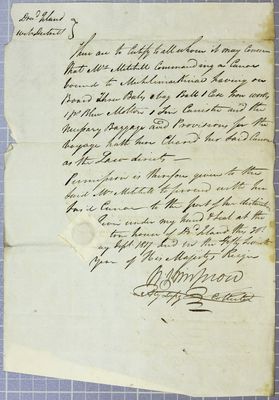 Drd. Island
These are to Certify to all whom it may Concern
that Mrs. Mitchell Commanding a Canoe
bound to Michilimackinac having on
Board Three Bales a bag Ball 1 Case Iron works
1 ps. Blue Molton 1 Tin Canister and the
Necessary Baggage and Provisions for the
Voyage hath here Cleared her said Canoe
as the Law directs
Permission is therefore given to the
said Mrs. Mitchell to proceed with her
said Canoe to the port of her destination
Given under my hand & Seal at the
Custom house of Drd. Island the 20th
day Sept. 1817 and in the Year
of His Majestys Reign
Collector